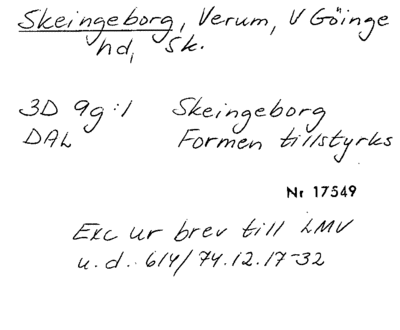 Skeingeborg, Verum, V Göinge
hd, Sk.
3D 9g:1 Skeingeborg
DAL Formen tillstyrks
Nr 17549
Exc ur brev till LMV
u.d. 614/74.12.17-32